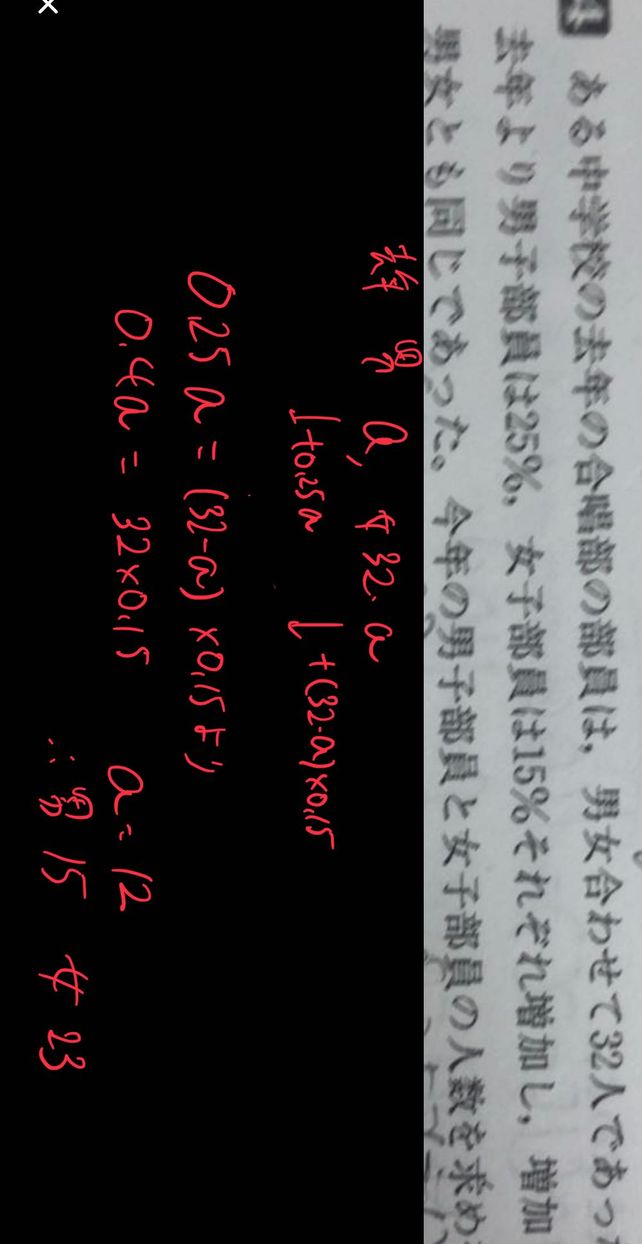 ある中学校の去年の合唱部の部員は，男女合わせて32人であっ
去年より男子部員は25%，女子部員は15%それぞれ増加し，増加
男女とも同じであった。今年の男子部員と女子部員の人数を求め
去年 男 a, 女 32-a
↓+0.25a ↓+(32-a)×0.15
0.25a = (32-a)×0.15より
0.4a = 32×0.15 a=12
∴男 15 女 23